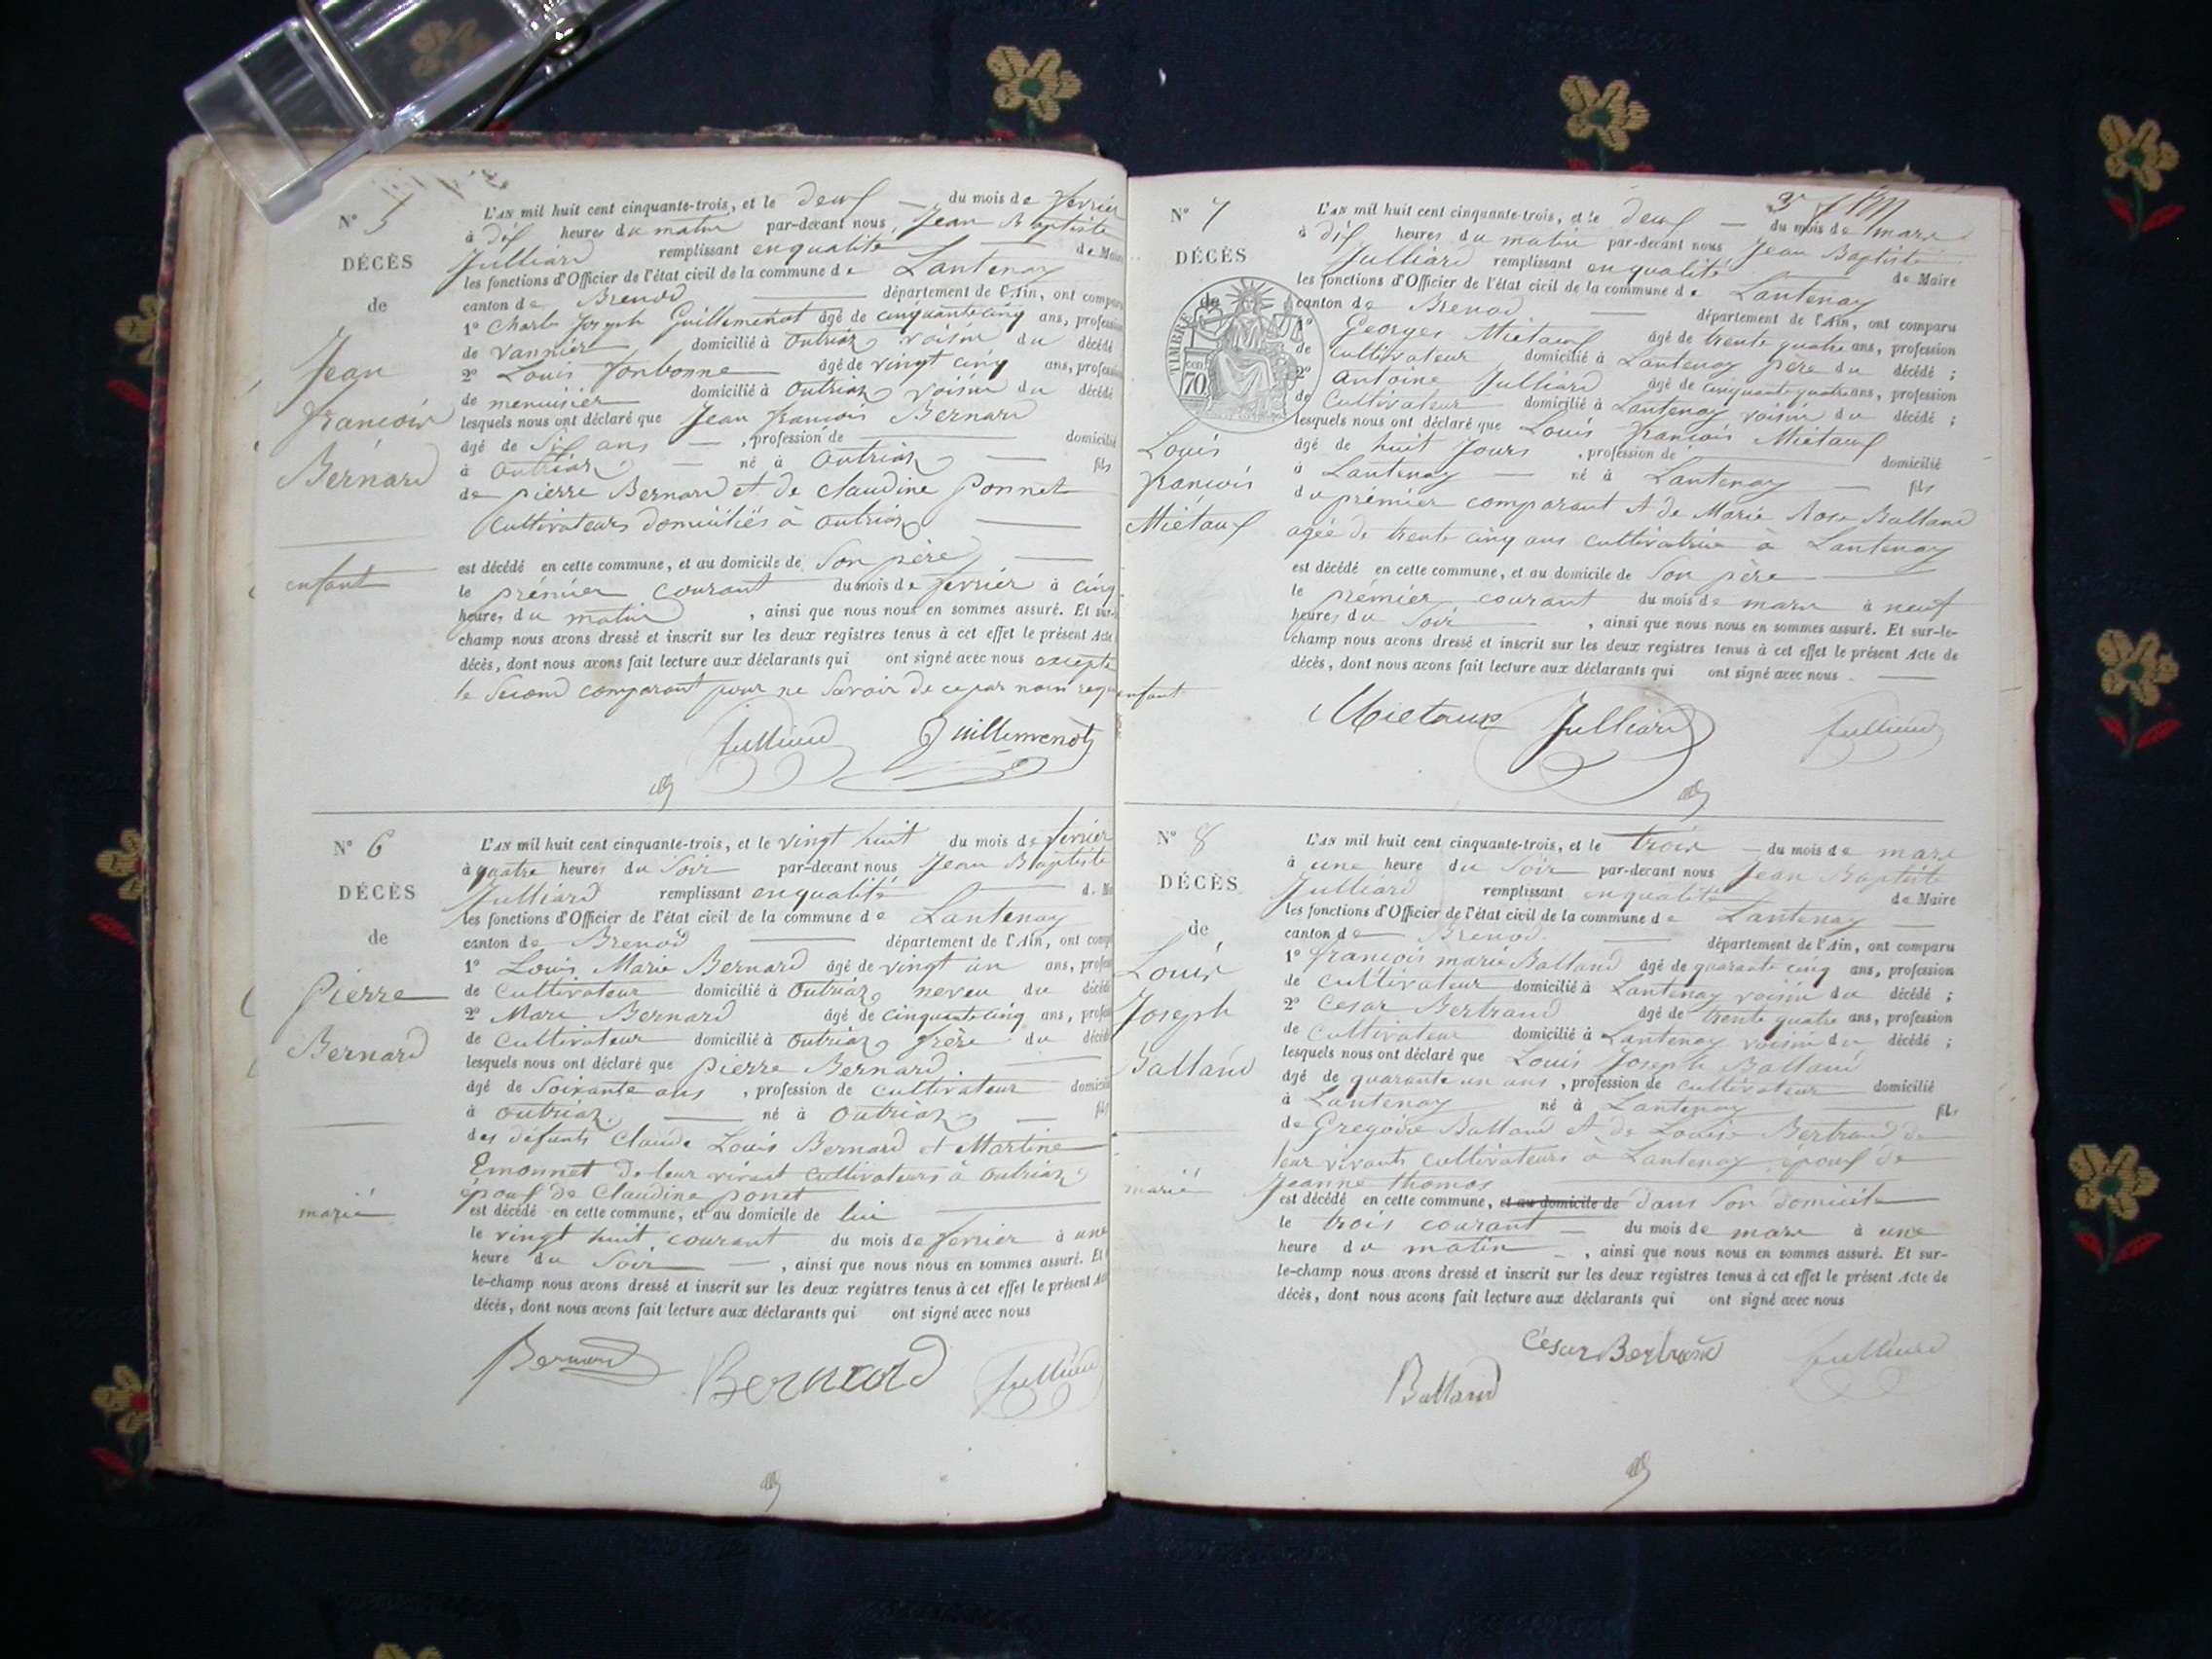 N° 5
DÉCÈS
de
Jean
françois
Bernard
enfant
L'AN mil huit cent cinquante-trois, et le deux du mois de fevrier
à dix heures du matin par-devant nous, Jean Baptiste
Julliard remplissant en qualité de Maire
les fonctions d'Officier de l'état civil de la commune de Lantenay
canton de Brenod département de l'Ain, ont comparu
1° Charles Joseph Guillemenot âgé de cinquante cinq ans, profession
de vannier domicilié à Outriaz voisin du décédé
2° Louis fonbonne âgé de vingt cinq ans, profession
de menuisier domicilié à Outriaz voisin du décédé
lesquels nous ont déclaré que Jean françois Bernard
âgé de Six ans , profession de domicilié
à Outriaz né à Outriaz fils
de pierre Bernard et de claudine Ponnet
cultivateurs domiciliés à outriaz
est décédé en cette commune, et au domicile de Son père
le prémier courant du mois de fevrier à cinq
heures du matin , ainsi que nous nous en sommes assuré. Et sur-
champ nous avons dressé et inscrit sur les deux registres tenus à cet effet le présent Acte
décès, dont nous avons fait lecture aux déclarants qui ont signé avec nous excepté
le Second comparant pour ne Savoir de ce par nous requ
Julliard Guillemenot
N° 6
DÉCÈS
de
Pierre
Bernard
marié
L'AN mil huit cent cinquante-trois, et le vingt huit du mois de fevrier
à quatre heures du Soir par-devant nous Jean Baptiste
Julliard remplissant en qualité d. Ma
les fonctions d'Officier de l'état civil de la commune de Lantenay
canton de Brenod département de l'Ain, ont comp
1° Louis Marie Bernard âgé de vingt un ans, profess
de Cultivateur domicilié à Outriaz neveu du décédé
2° Marc Bernard âgé de cinquante cinq ans, profess
de Cultivateur domicilié à outriaz frère du décédé
lesquels nous ont déclaré que pierre Bernard
âgé de Soixante ans , profession de cultivateur domicilié
à outriaz né à Outriaz fils
des défunts Claude Louis Bernard et Martine
Emonnet de leur vivant cultivateurs à outriaz
époux de Claudine ponet
est décédé en cette commune, et au domicile de lui
le vingt huit courant du mois de fevrier à une
heure du Soir , ainsi que nous nous en sommes assuré. Et
le-champ nous avons dressé et inscrit sur les deux registres tenus à cet effet le présent Acte
décès, dont nous avons fait lecture aux déclarants qui ont signé avec nous
Bernard Bernard Julliard
N° 7
DÉCÈS
de
TIMBRE
70 cent
Louis
françois
Miétaux
enfant
L'AN mil huit cent cinquante-trois, et le deux du mois de mars
à dix heures du matin par-devant nous Jean Baptiste
Julliard remplissant en qualité de Maire
les fonctions d'Officier de l'état civil de la commune de Lantenay
canton de Brenod département de l'Ain, ont comparu
1° Georges Miétaux âgé de trente quatre ans, profession
de cultivateur domicilié à Lantenay père du décédé ;
2° antoine Julliard âgé de cinquante quatre ans, profession
de Cultivateur domicilié à Lantenay voisin du décédé ;
lesquels nous ont déclaré que Louis françois Miétaux
âgé de huit Jours , profession de domicilié
à Lantenay né à Lantenay fils
du prémier comparant et de Marie Rose Balland
agée de trente cinq ans cultivatrice à Lantenay
est décédé en cette commune, et au domicile de Son père
le prémier courant du mois de mars à neuf
heures du Soir , ainsi que nous nous en sommes assuré. Et sur-le-
champ nous avons dressé et inscrit sur les deux registres tenus à cet effet le présent Acte de
décès, dont nous avons fait lecture aux déclarants qui ont signé avec nous
Mietaux Julliard Julliard
N° 8
DÉCÈS
de
Louis
Joseph
Balland
marié
L'AN mil huit cent cinquante-trois, et le trois du mois de mars
à une heure du Soir par-devant nous Jean Baptiste
Julliard remplissant en qualité de Maire
les fonctions d'Officier de l'état civil de la commune de Lantenay
canton de Brenod département de l'Ain, ont comparu
1° françois marie Balland âgé de quarante cinq ans, profession
de cultivateur domicilié à Lantenay voisin du décédé ;
2° Cesar Bertrand âgé de trente quatre ans, profession
de Cultivateur domicilié à Lantenay voisin du décédé ;
lesquels nous ont déclaré que Louis Joseph Balland
âgé de quarante un ans , profession de cultivateur domicilié
à Lantenay né à Lantenay fils
de Gregoire Balland et de Louise Bertrand de
leur vivants cultivateurs à Lantenay époux de
Jeanne thomas
est décédé en cette commune, et au domicile de dans Son domicile
le trois courant du mois de mars à une
heure du matin , ainsi que nous nous en sommes assuré. Et sur-
le-champ nous avons dressé et inscrit sur les deux registres tenus à cet effet le présent Acte de
décès, dont nous avons fait lecture aux déclarants qui ont signé avec nous
César Bertrand Julliard
Balland